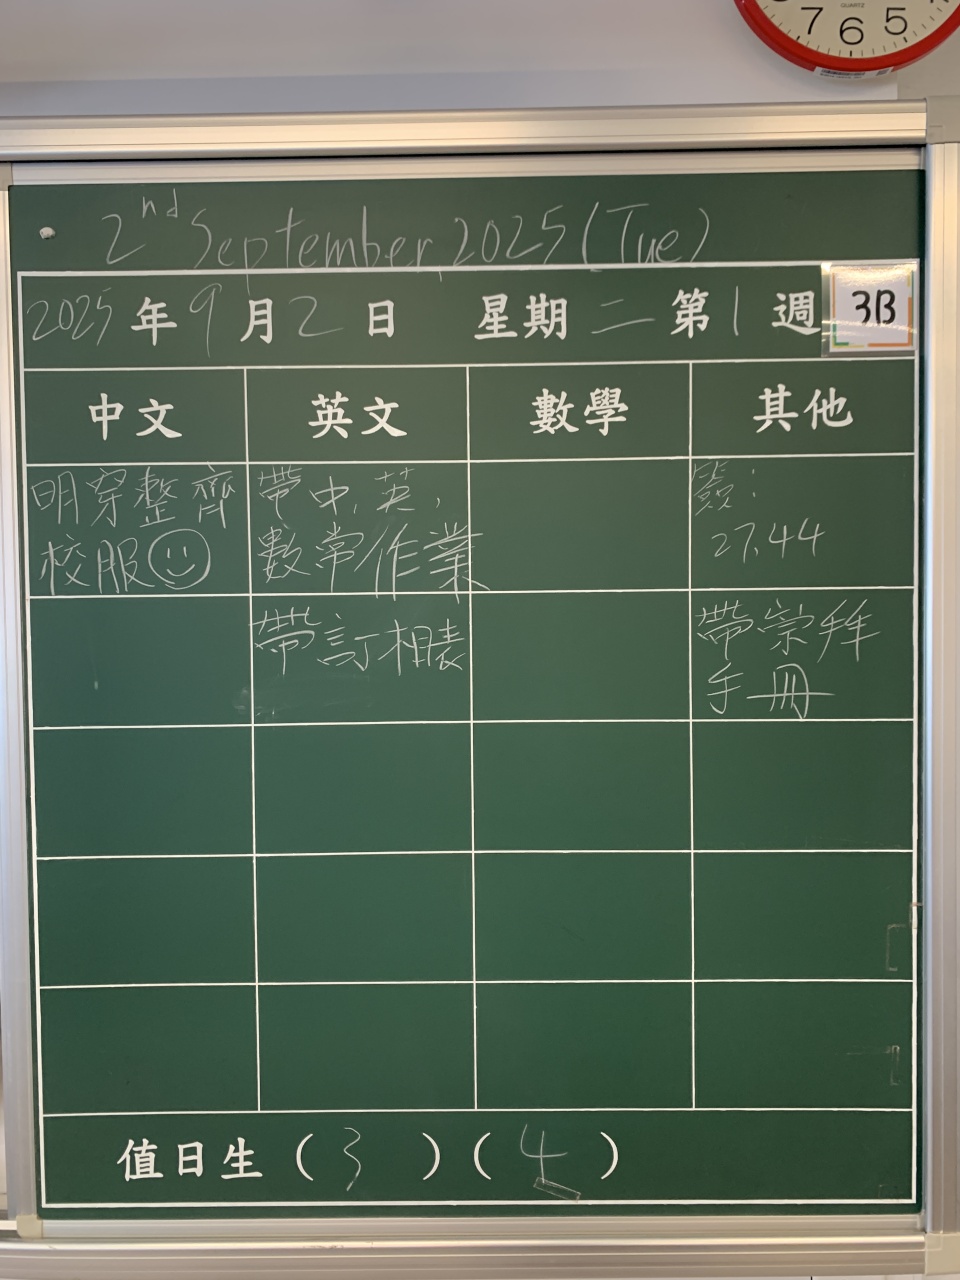 7 6 5
QUARTZ
2nd September, 2025 (Tue)
2025 年 9 月 2 日 星期 二 第 1 週 3B
中文 英文 數學 其他
明穿整齊
校服
帶中,英,
數常作業
簽:
27,44
帶訂相表
帶崇拜
手冊
值日生 ( 3 ) ( 4 )